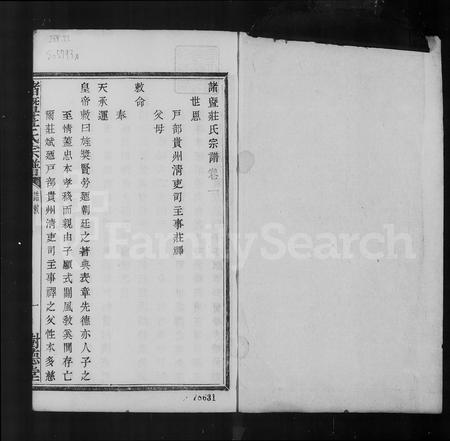 諸暨莊氏宗譜卷一
世恩
戶部貴州清吏司主事莊禪
父母
敕命
奉
天承運
皇帝敕曰旌獎賢勞廼朝廷之著典表章先德亦人子之
至情蓋忠本孝移而親由子顯式關風教奚間存亡
爾莊斌廼戶部貴州清吏司主事禪之父性本多慈
諸暨莊氏宗譜
一
樹德堂
FamilySearch